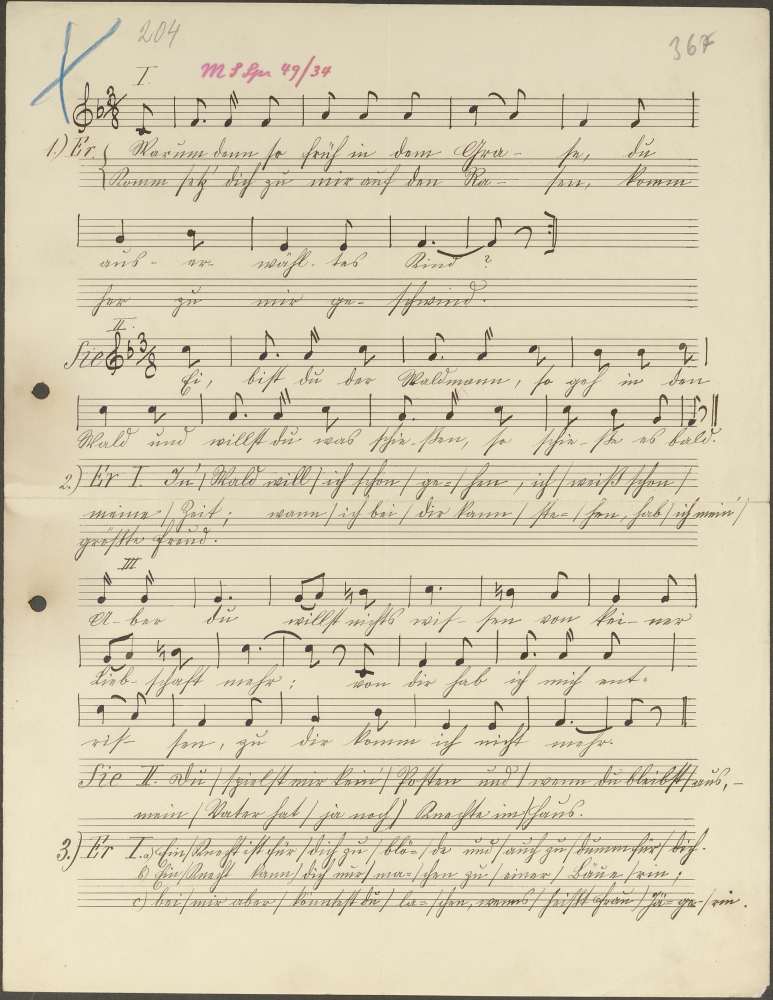 204
367
I.
M S Spr 49/34
1.) Er. Warum denn so früh in dem Gra- se, du
Komm setz' dich zu mir auf den Ra- sen, komm
aus- er- wähl- tes Kind?
her zu mir ge- schwind.
II.
Sie
Ei, bist du der Waldmann, so geh in den
Wald und willst du was schie-ßen, so schie-ße es bald.
2.) Er I. In'/Wald will/ich schon/ge=/hen, ich/weiß schon/
meine/Zeit; wann/ich bei/dir kann/ste=/hen, hab/ich mein'/
größte Freud.
III
A- ber du willst nichts wis- sen von kei- ner
Lieb- schaft mehr; von dir hab ich mich ent-
ris- sen, zu dir komm ich nicht mehr.
Sie II. Du/spielst mir kein'/Posten und/wenn du bleibst/aus,-
mein/Vater hat/ja noch/Knechte im/Haus.
3.) Er I. a) Ein/Knecht ist für/dich zu/blö=/de und/auch zu/dumm für/dich.
b) Ein/Knecht kann/dich nur/ma=/chen zu/einer/Bäue/rin;
c) bei/mir aber/könntest du/la=/chen, wenns/heißt Frau/Jä=ge-/rin.